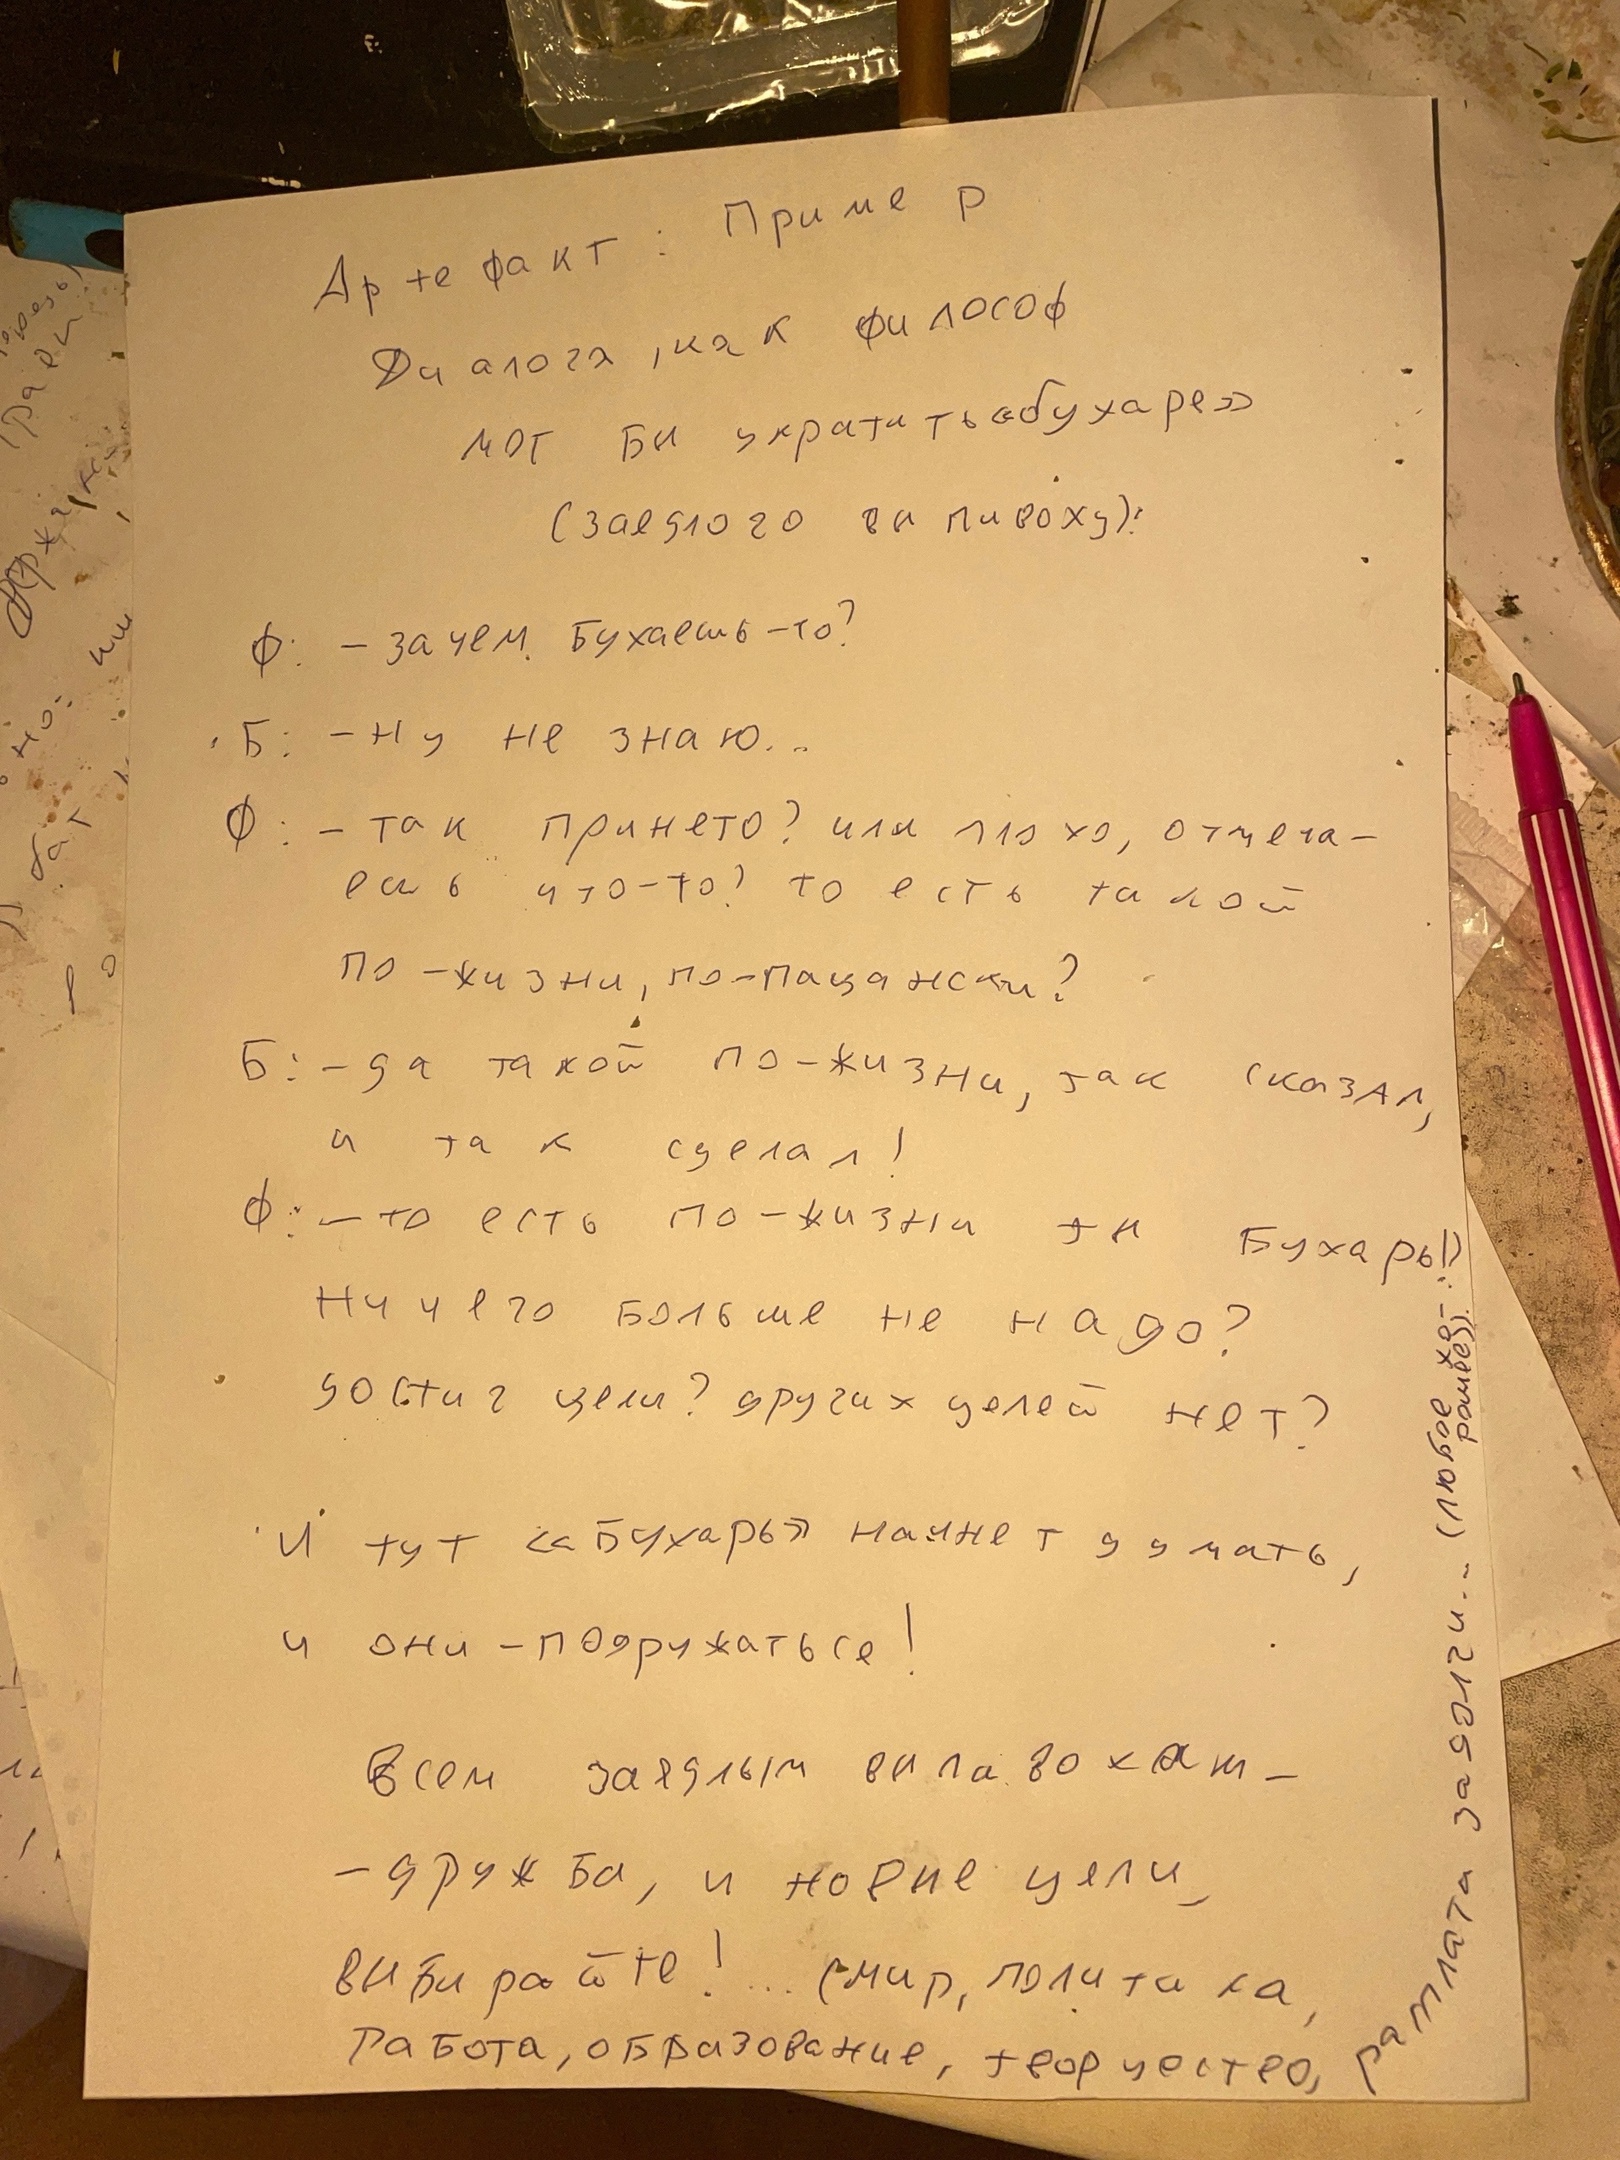 Артефакт: Пример
Диалога, как философ
мог бы укратить «бухаре»
(заедлого выпивоху):
Ф: - зачем Бухаешь-то?
Б: - ну не знаю...
Ф: - так принето? или плохо, отмеча-
ешь что-то? то есть такой
по-жизни, по-пацански?
Б: - да такой по-жизни, так сказал,
и так сделал!
Ф: - то есть по-жизни ты Бухарь!»
Ничего больше не надо?
достиг цели? других целей нет?
И тут «Бухарь» начнет думать,
и они - подружаться!
Всем заедлым выпивохам -
- дружба, и новые цели,
выбирайте!... (мир, политика,
работа, образование, творчество,
расплата за долги... (любое хо-
рошее)).